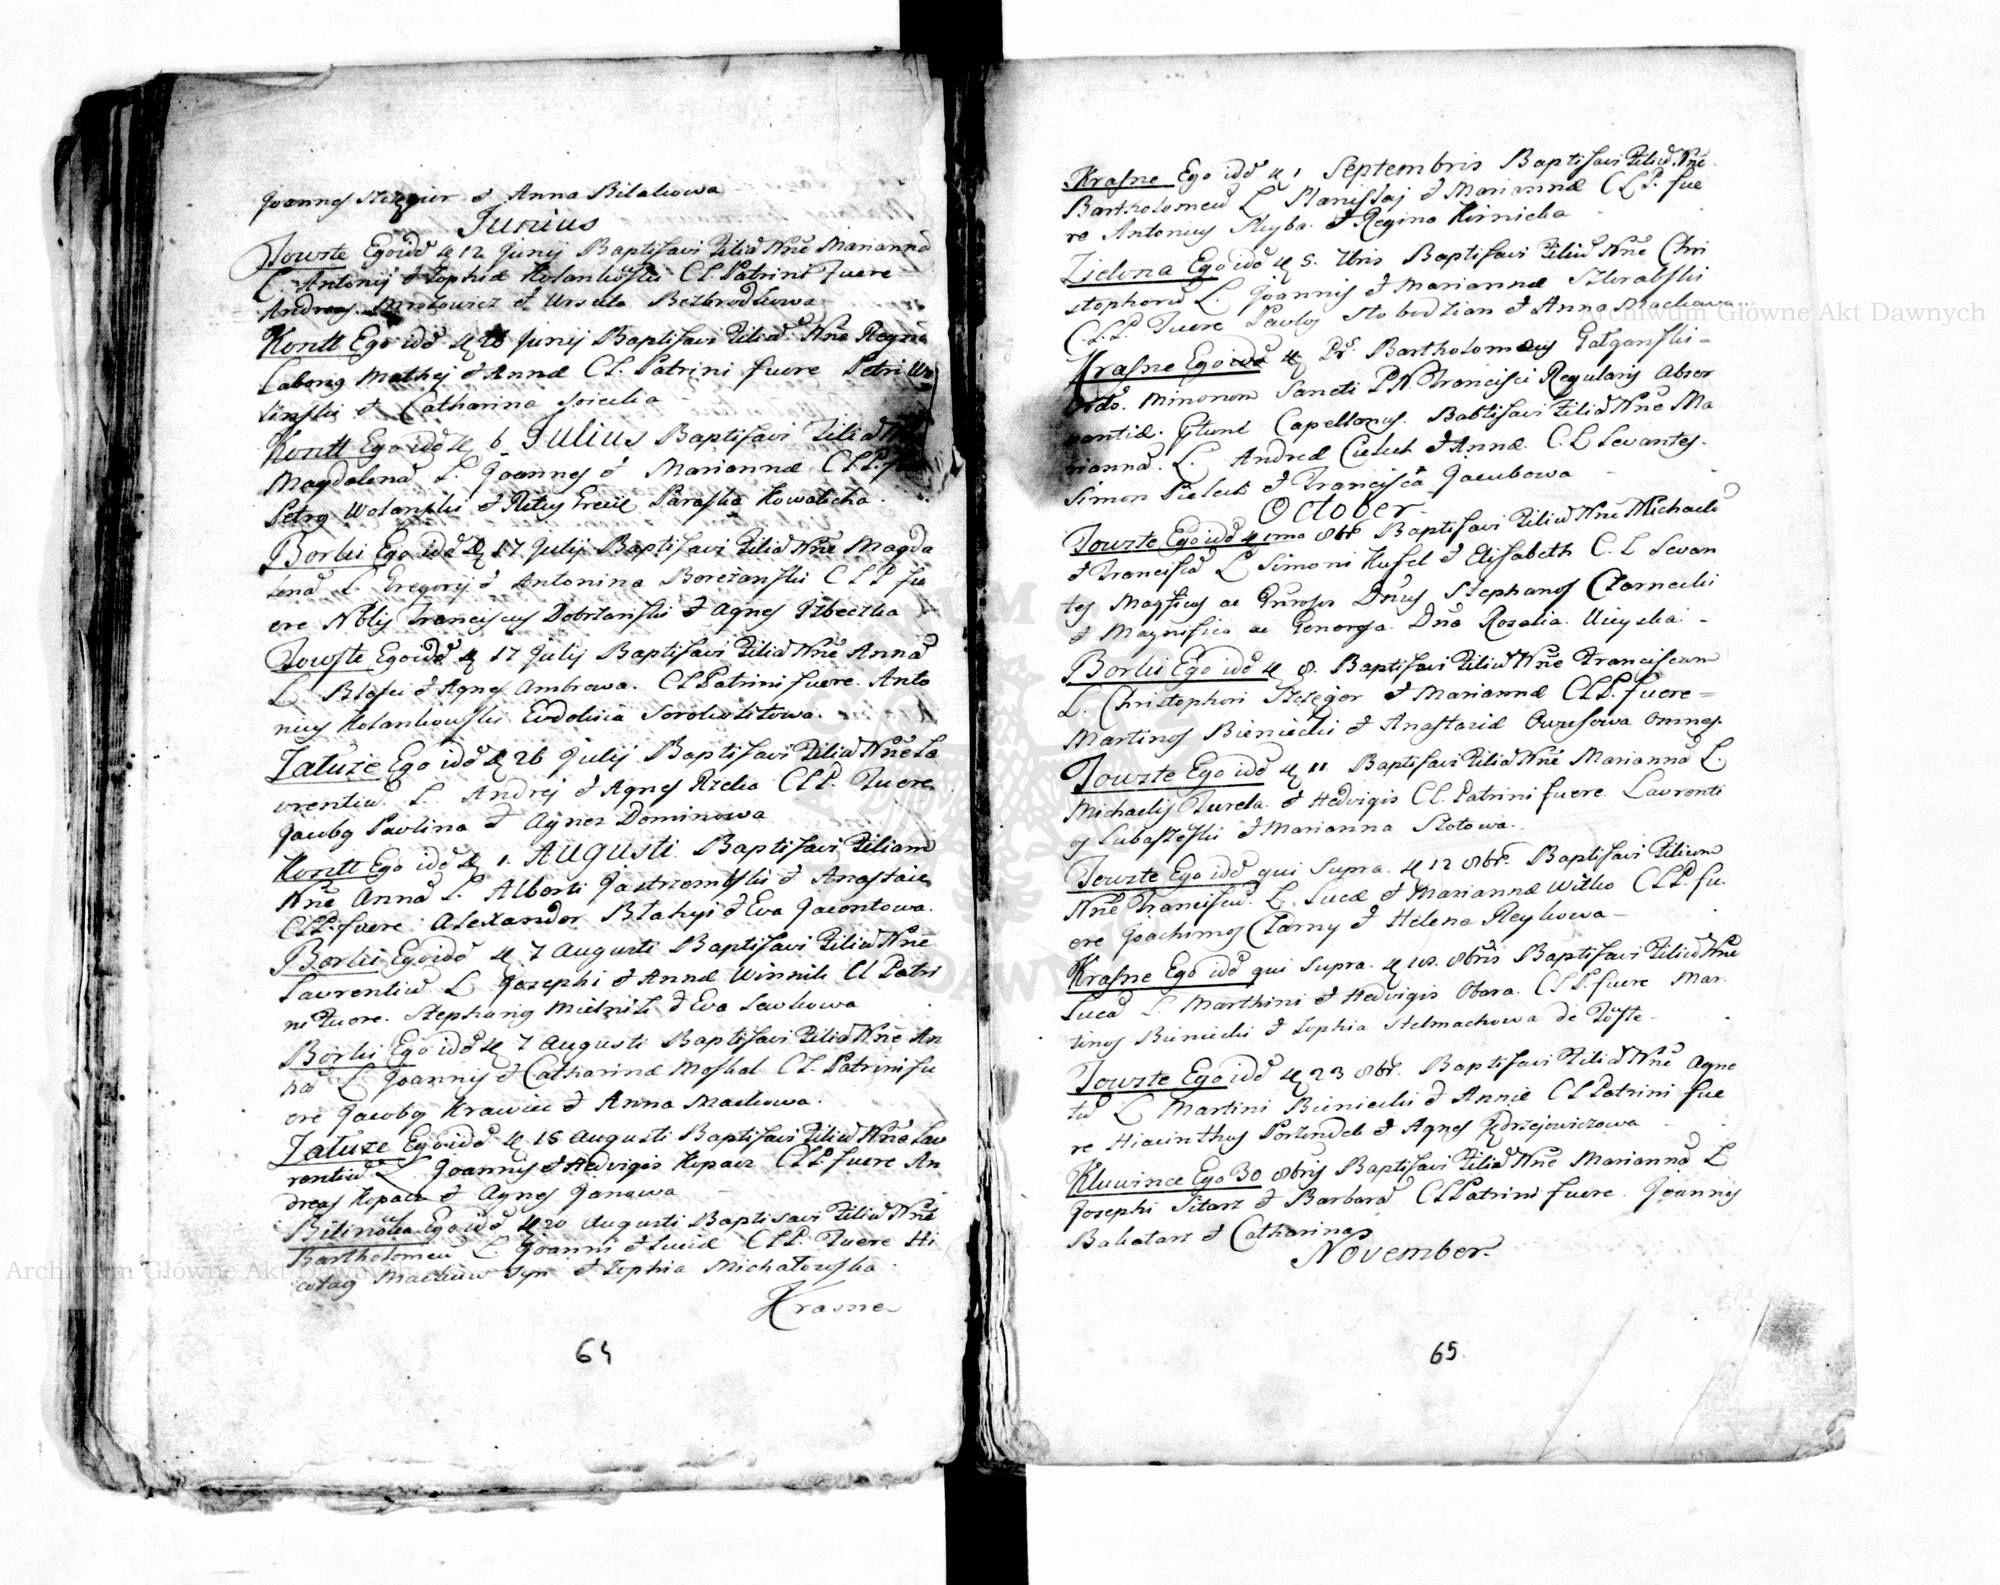 Joannes Stezgier et Anna Bilakowa
Junius
Towste Ego idē d 12 Junij Baptisavi Filiā Nnē Mariannā
L. Antonij et Zophiæ Kolankowski CL Patrini Fuere
Andreas Mrozowicz et Ursula Bezbrodkowa
Kontt Ego idē d 26 Junij Baptisavi Filiā Nnē Regina
Laborig Mathej et Annæ CL. Patrini fuere Petri
et Catharina
Kontt Ego idē d 6 Julius Baptisavi Filiā
Magdalenā L. Joannes et Mariannæ CLP.
Petrg Wolanski et Paraska Kowalicha
Borki Ego idē d 17 Julij Baptisavi Filiā Nnē Magda
lenā L. Gregorij et Antonina Borezanski CLP fu
ere Nblis Franciscus Dobrzanski et Agnes
Towste Ego idē d 17 Julij Baptisavi Filiā Nnē Annā
L. Blasei et Agnes Ambrowa. CL Patrini fuere. Anto
nius Kolankowski Eudokia
Zaluże Ego idē d 26 Julij Baptisavi Filiū Nnē La
urentiū. L. Andrej et Agnes Rzeka CLP. Fuere
Jacobg Pavlina et Agnes Dominowa
Kontt Ego idē d 1. Augusti. Baptisavi Filiam
Nnē Annā L. Alberti Jastrzembski et Anastaiæ
CLP. fuere Alexander Blahyi et Eva Jacentowa.
Borki Ego idē d 7 Augusti Baptisavi Filiū Nnē
Laurentiū L Josephi et Annæ Winnik CL Patri
ni Fuere. Stephang Mielnik et Eva Sawkowa
Borki Ego idē d 7 Augusti Baptisavi Filiā Nnē An
nā L Joannis et Catharinæ Moskal CL. Patrini fu
ere Jacobg Krawiec et Anna Mackowa.
Zaluże Ego idē d 15 Augusti Baptisavi Filiū Nnē Lau
rentiū L. Joannis et Hedvigis Kopacz CLP. fuere An
dreas Kopacz et Agnes Janowa
Bilinówka Ego idē d 20 Augusti Baptisavi Filiū Nnē
Bartholomeū L. Joanni et Luciæ CLP. Fuere Ni
colag Mackow Syn et Zophia Michałowska
Krasne
64
Krasne Ego idē d 1 Septembris Baptisavi Filiū Nnē
Bartholomeū L Stanislaj et Mariannæ CLP. fue
re Antonius Skyba. et Regina Kirnicka
Zielona Ego idē d 5. 7bris Baptisavi Filiū Nnē Chri
stophorū L. Joannis et Mariannæ
C.L.P. Fuere Pavlos Stobodzian et Anna Mackowa
Krasne Ego idē d Pr. Bartholomeus Gałganski=
Ordo. Minorum Sancti P.N. Francisci Regularis Obser
vantiæ. Capellanus. Babtisavi Filiā Nnē Ma
riannā. L. Andreæ Cielech et Annæ. C.L Levantes.
Simon Pielech et Francisca Jacubowa
October.
Towste Ego idē d 1mo 8br Baptisavi Filiū Nnē Michaelē
et Franciscū L Simoni Kusel et Elisabeth C.L Levan
tes Magficus ac Dnus Stephanos Czarnecki
et Magnifica ac Generosa. Dnā Rosalia.
Borki Ego idē d 8. Baptisavi Filiū Nnē Franciscum
L. Christophori Stezgier et Mariannæ CLP. fuere=
Martinos Bieniecki et Anastaziæ Owresowa omnes
Towste Ego idē d 11 Baptisavi Filiā Nnē Mariannā L.
Michaelis Fureta et Hedvigis CL. Patrini fuere. Laurenti
os Lubaszewski et Marianna Stotowa.
Towste Ego idē qui Supra. d 12 8br. Baptisavi Filium
Nnē Franciscū. L. Lucæ et Mariannæ Witko CLP. fu.
ere Joachimos Czarny et Helena Reykowa
Krasne Ego idē qui Supra. d 8bris Baptisavi Filiū Nnē
Lucā L. Marthini et Hedvigis Obara. CLP. fuere Mar.
tinos Bieniecki et Zophia Stelmachowa de Towste
Towste Ego idē d 23 8br. Baptisavi Filiā Nnē Agne
tā L Martini Bieniecki et Annæ CL Patrini fue
re Hiacinthus et Agnes Jędrzejowiczowa
Kluwince Ego 30 8bris Baptisavi Filiā Nnē Mariannā L
Josephi Sitarz et Barbarā CL Patrini fuere. Joannis
Bakalarz et Catharinas
November.
65.
Archiwum Główne Akt Dawnych
Archiwum Główne Akt Dawnych